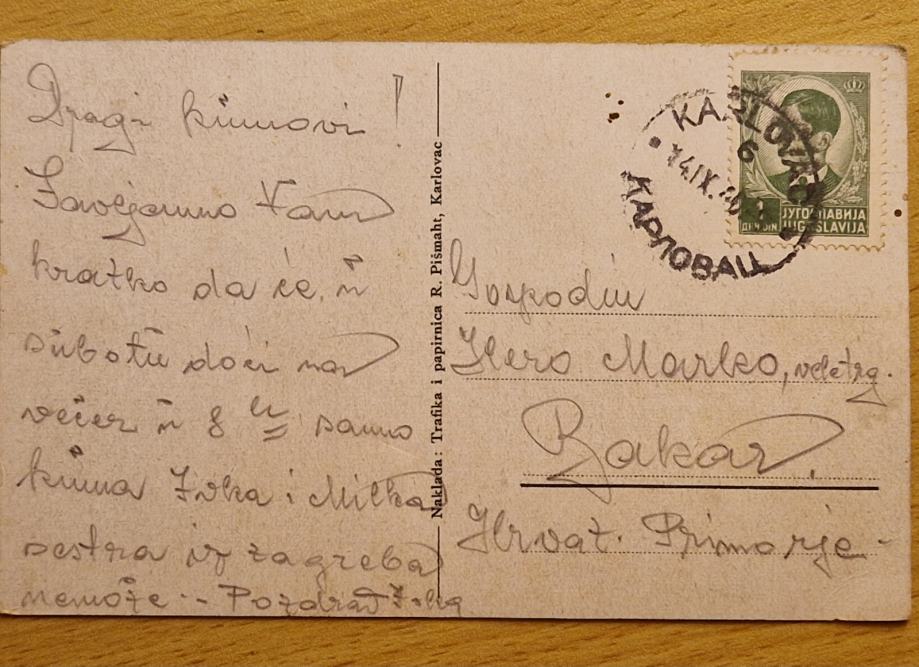 Dragi kumovi!
Javljamo Vam
kratko da će u
subotu doći na
večer u 8 samo
kuma Ivka i Milka
sestra iz zagreba
nemože -- Pozdrav
Naklada: Trafika i papirnica R. Pišmaht, Karlovac
KARLOVAC
6
14.IX.40
КАРЛОВАЦ
1
ДИН DIN
ЈУГОСЛАВИЈА
JUGOSLAVIJA
Gospodin
Hero Marko, veletrg.
Bakar.
Hrvat. Primorje-